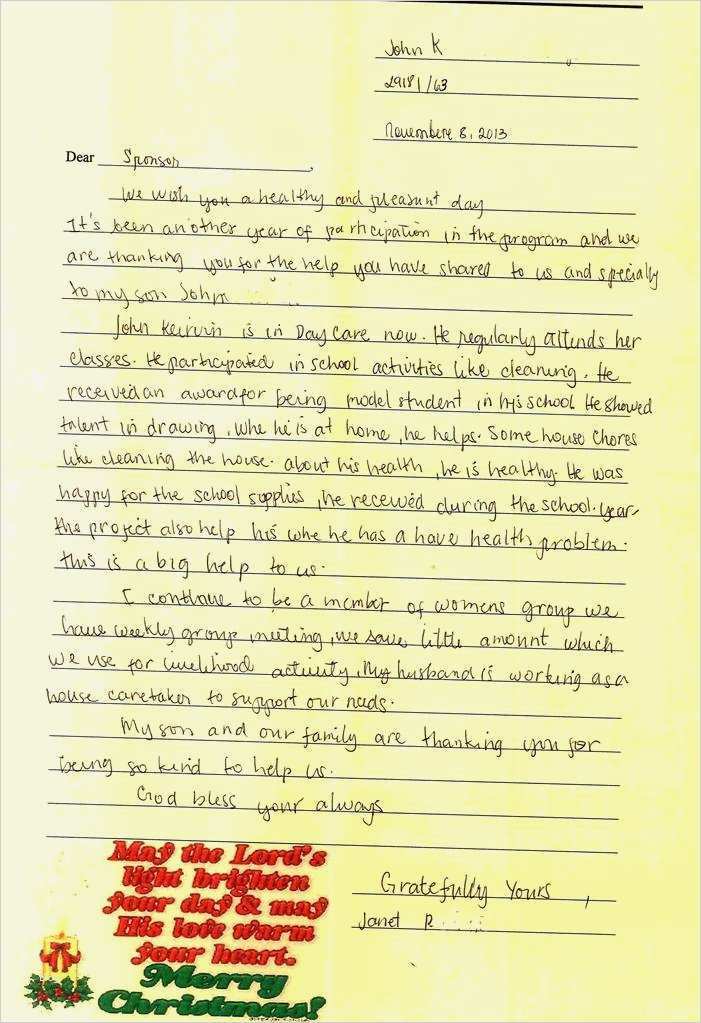 John K
29181/63
Novembere 8, 2013
Dear Sponsor,
We wish you a healthy and pleasant day
It's been another year of participation in the program and we
are thanking you for the help you have shared to us and specially
to my son John
John Keirvin is in Day Care now. He regularly attends her
classes. He participated in school activities like cleaning. He
received an award for being model student in his school He showed
talent in drawing, whe he is at home, he helps. Some house chores
like cleaning the house. about his health, he is healthy. He was
happy for the school supplies, he received during the school.year,
the project also help his whe he has a have health problem.
this is a big help to us.
I continue to be a member of womens group we
have weekly group meeting, we save little amount which
we use for livelihood activity, My husband is working as a
house caretaker to support our nads.
My son and our family are thanking you for
being so kind to help us.
God bless your always
May the Lord's
light brighten
your day & may
His love warm
your heart.
Merry
Christmas!
Gratefully Yours,
Janet R